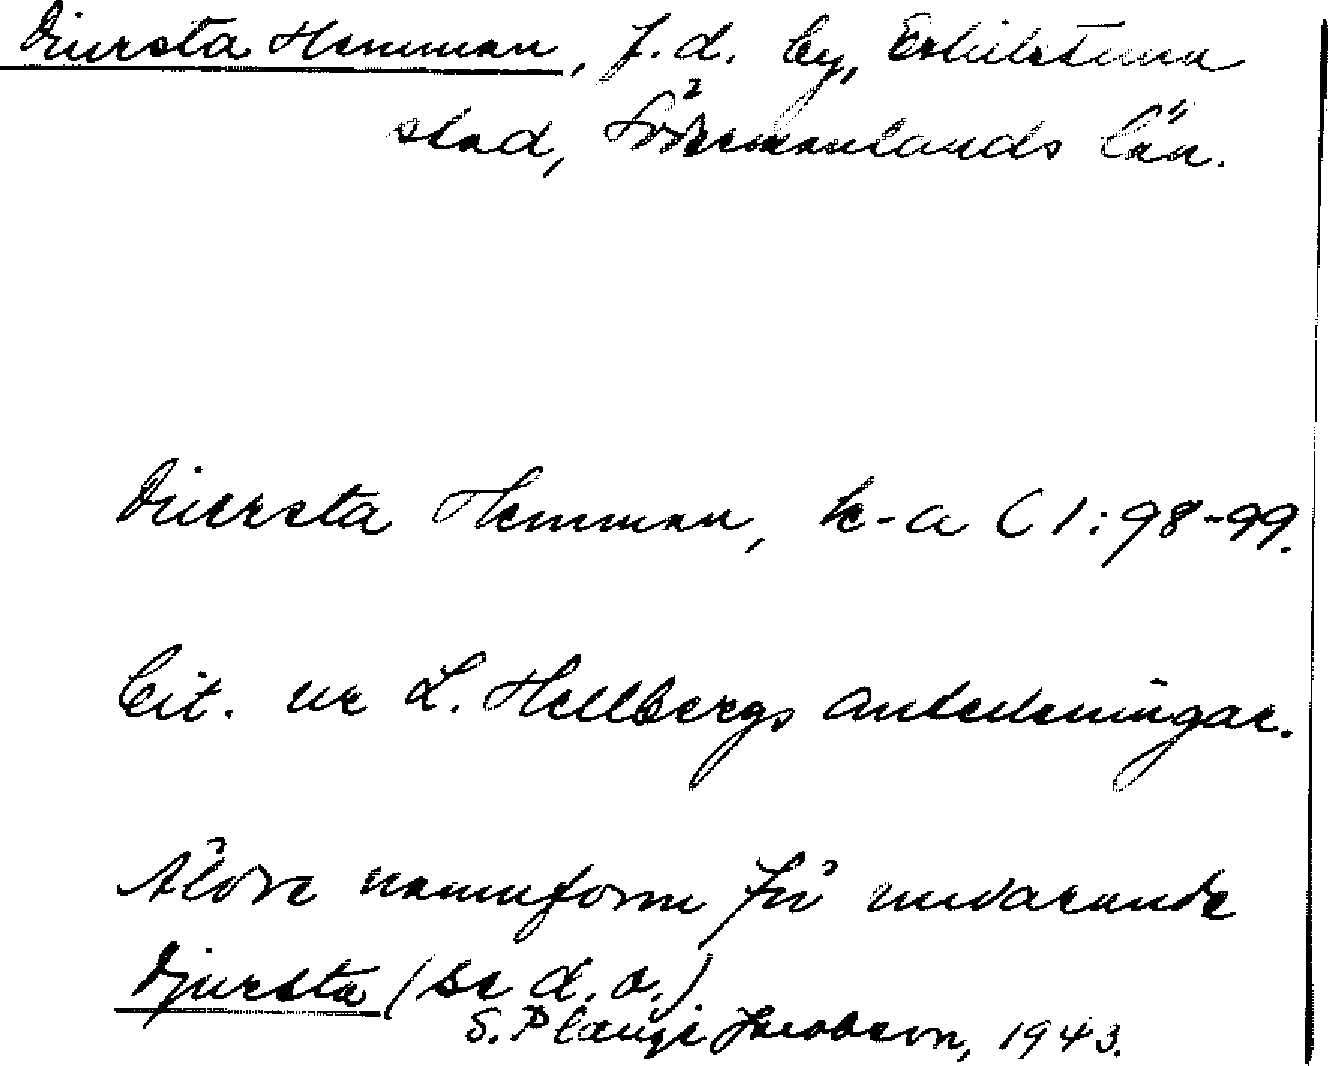 Diursta Hemman, f.d. by, Eskilstuna
stad, Södermanlands län.
Diursta Hemman, k-a C 1:98-99.
Cit. ur L. Hellbergs anteckningar.
Äldre namnform för nuvarande
Djursta (se d.o.)
S. Plaugé Jacobson, 1943.